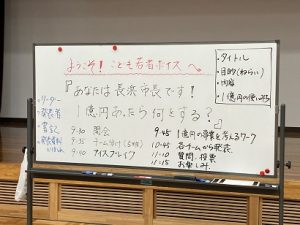 ようこそ！こども若者ボイスへ
『あなたは長浜市長です！
１億円あったら何をする？』
・タイトル
・目的(ねらい)
・内容
・１億円の使いみち
・リーダー
・発表者
・書記
9:30 開会
9:35 チーム分け(5分)
9:40 アイスブレイク
9:45 １億円の事業を考えるワーク
10:45 各チームから発表
11:10 質問、投票
11:15 お楽しみ